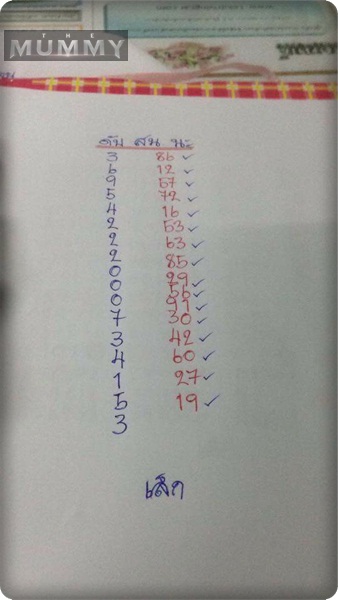 THE
MUMMY
ดับ สน นะ
3 86 ✓
6 12 ✓
9 57 ✓
5 72 ✓
4 16 ✓
2 53 ✓
2 63 ✓
2 85 ✓
0 29 ✓
0 56 ✓
0 91 ✓
7 30 ✓
3 42 ✓
4 60 ✓
1 27 ✓
5 19 ✓
3
เล็ก